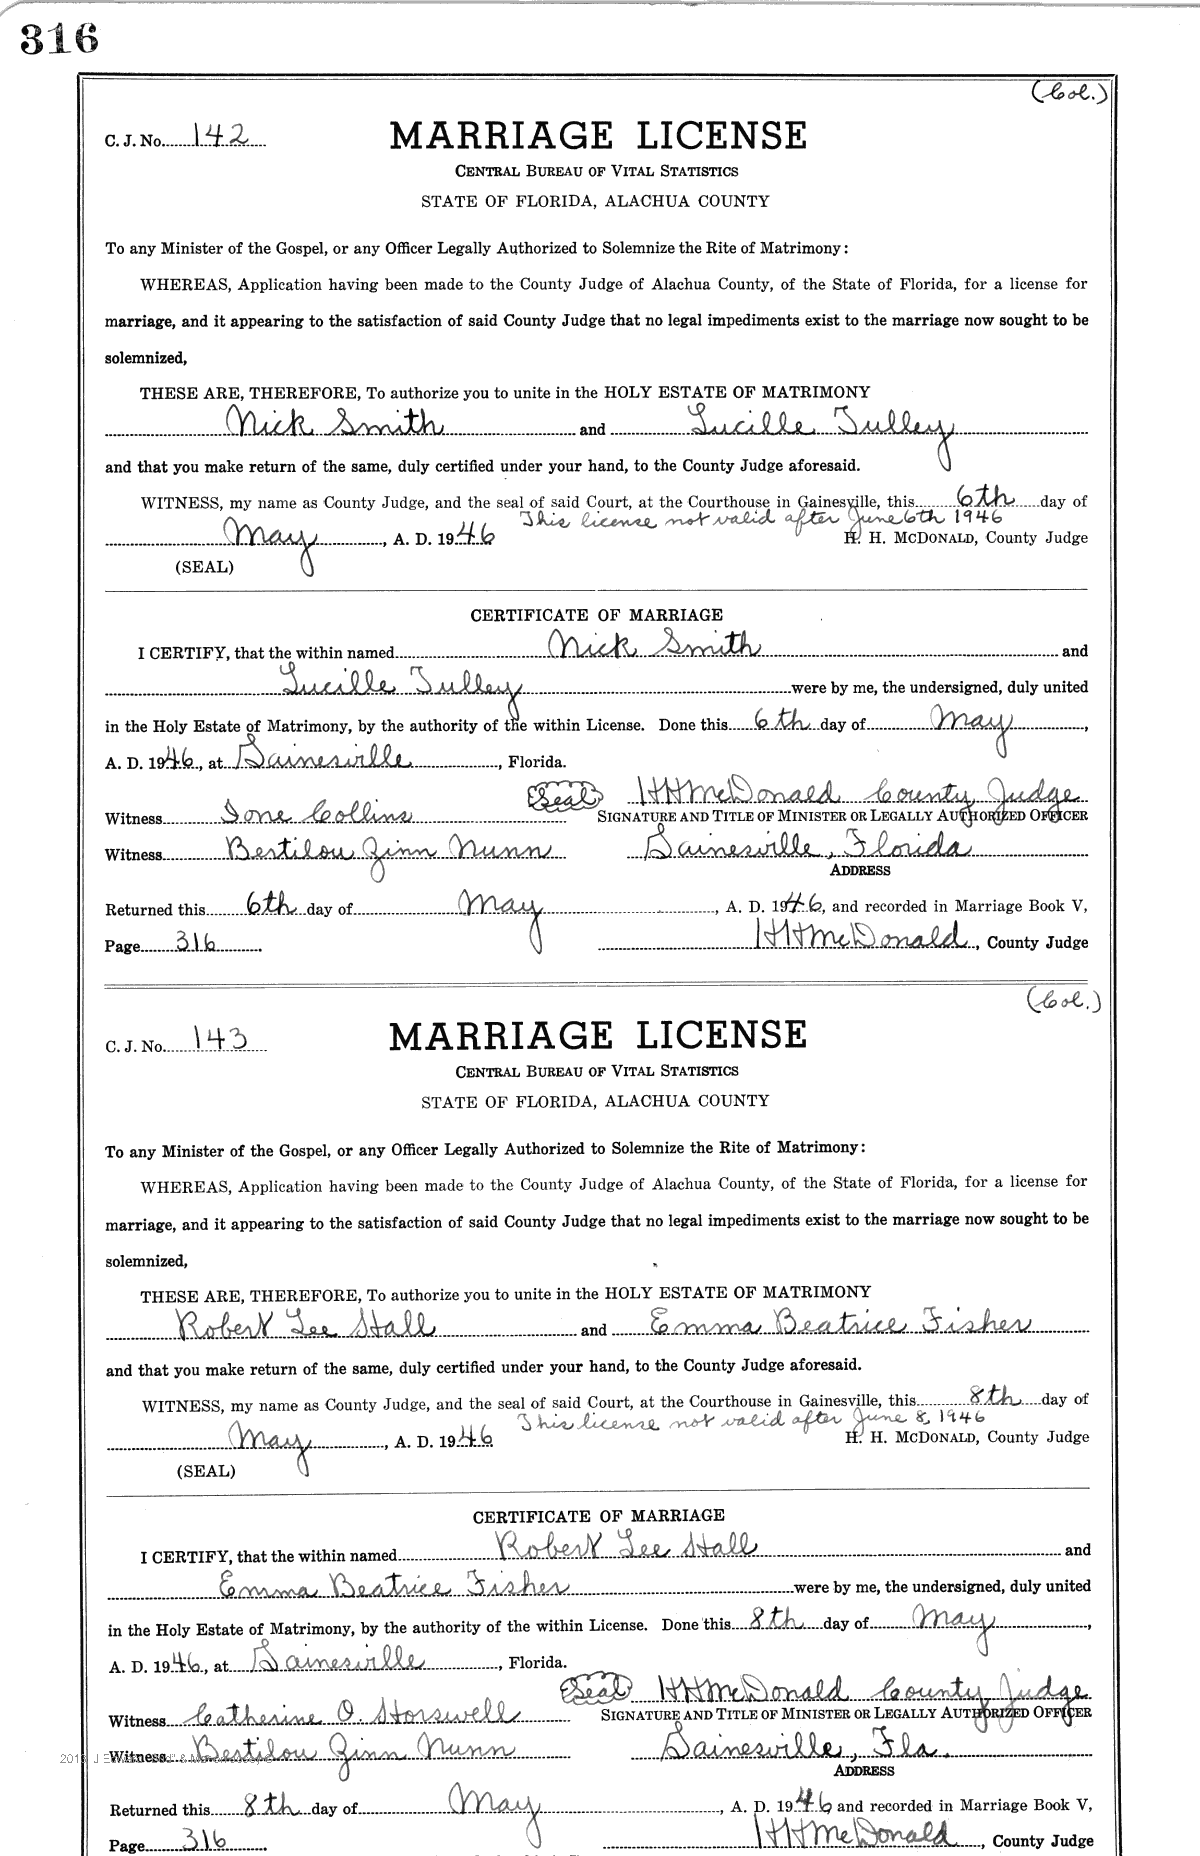 316
(Col.)
C. J. No. 142
MARRIAGE LICENSE
CENTRAL BUREAU OF VITAL STATISTICS
STATE OF FLORIDA, ALACHUA COUNTY
To any Minister of the Gospel, or any Officer Legally Authorized to Solemnize the Rite of Matrimony:
WHEREAS, Application having been made to the County Judge of Alachua County, of the State of Florida, for a license for
marriage, and it appearing to the satisfaction of said County Judge that no legal impediments exist to the marriage now sought to be
solemnized,
THESE ARE, THEREFORE, To authorize you to unite in the HOLY ESTATE OF MATRIMONY
Nick Smith and Lucille Tulley
and that you make return of the same, duly certified under your hand, to the County Judge aforesaid.
WITNESS, my name as County Judge, and the seal of said Court, at the Courthouse in Gainesville, this 6th day of
This license not valid after June 6th 1946
May, A. D. 1946 H. H. MCDONALD, County Judge
(SEAL)
CERTIFICATE OF MARRIAGE
I CERTIFY, that the within named Nick Smith and
Lucille Tulley were by me, the undersigned, duly united
in the Holy Estate of Matrimony, by the authority of the within License. Done this 6th day of May,
A. D. 1946, at Gainesville, Florida.
Seal HHMcDonald County Judge
Witness Ione Collins SIGNATURE AND TITLE OF MINISTER OR LEGALLY AUTHORIZED OFFICER
Witness Bertilou Zinn Nunn Gainesville, Florida
ADDRESS
Returned this 6th day of May, A. D. 1946, and recorded in Marriage Book V,
Page 316 HHMcDonald, County Judge
(Col.)
C. J. No. 143
MARRIAGE LICENSE
CENTRAL BUREAU OF VITAL STATISTICS
STATE OF FLORIDA, ALACHUA COUNTY
To any Minister of the Gospel, or any Officer Legally Authorized to Solemnize the Rite of Matrimony:
WHEREAS, Application having been made to the County Judge of Alachua County, of the State of Florida, for a license for
marriage, and it appearing to the satisfaction of said County Judge that no legal impediments exist to the marriage now sought to be
solemnized,
THESE ARE, THEREFORE, To authorize you to unite in the HOLY ESTATE OF MATRIMONY
Robert Lee Hall and Emma Beatrice Fisher
and that you make return of the same, duly certified under your hand, to the County Judge aforesaid.
WITNESS, my name as County Judge, and the seal of said Court, at the Courthouse in Gainesville, this 8th day of
This license not valid after June 8, 1946
May, A. D. 1946 H. H. MCDONALD, County Judge
(SEAL)
CERTIFICATE OF MARRIAGE
I CERTIFY, that the within named Robert Lee Hall and
Emma Beatrice Fisher were by me, the undersigned, duly united
in the Holy Estate of Matrimony, by the authority of the within License. Done this 8th day of May,
A. D. 1946, at Gainesville, Florida.
Seal HHMcDonald County Judge
Witness Catherine O. Horswell SIGNATURE AND TITLE OF MINISTER OR LEGALLY AUTHORIZED OFFICER
Witness Bertilou Zinn Nunn Gainesville, Fla.
ADDRESS
Returned this 8th day of May, A. D. 1946 and recorded in Marriage Book V,
Page 316 HHMcDonald, County Judge